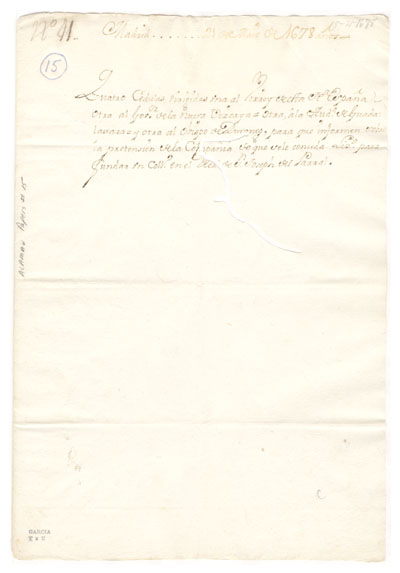 Nº 41. Madrid ....... 21 de Mayo de 1678 años
15-15-1678
15
Quatro Cedulas dirigidas una al Virrey de esta Nª España,
otra al Govr de la Nueva Vizcaya, otra, a la Auda de Guada
laxara, y otra al Obispo de Durango, para que informen sobre
la pretension de la Compania de que se le conceda para
fundar un Coll.o en el de S. Joseph del Parral.
Papers # 15
GARCIA